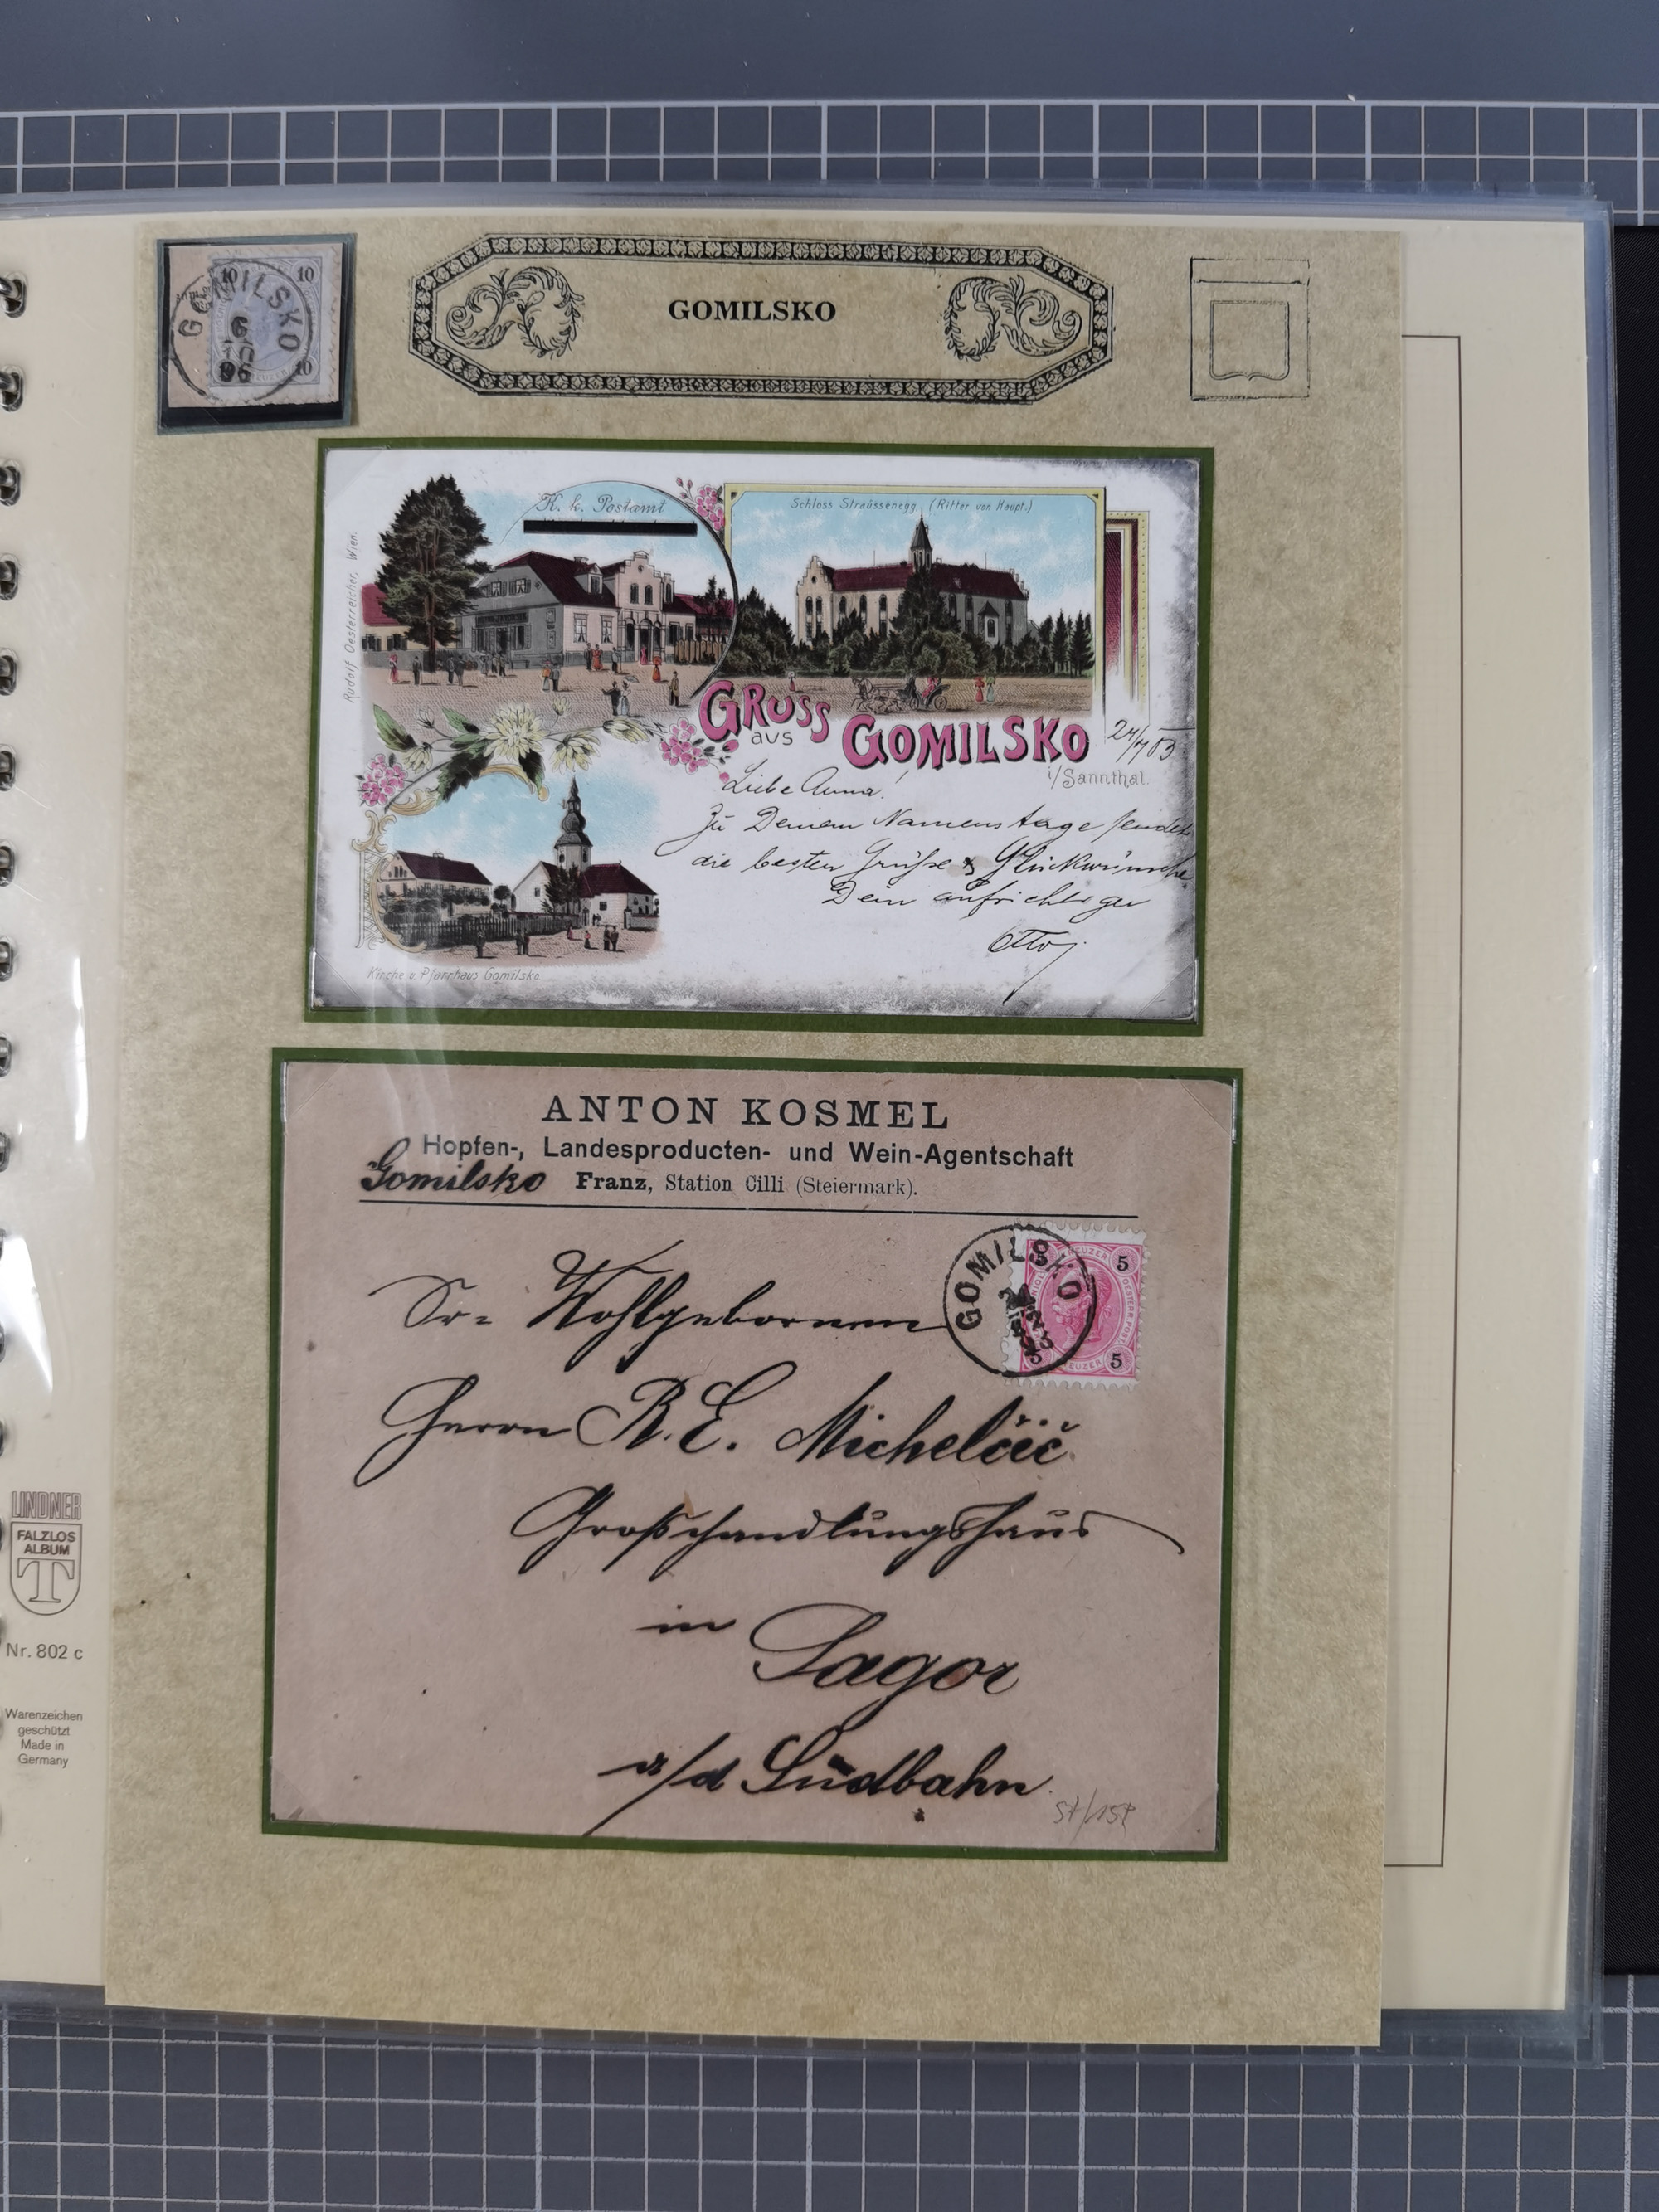 10 10
GOMILSKO
6
10
96
10
GOMILSKO
K. k. Postamt
Schloss Straüssenegg. (Ritter von Haupt.)
Rudolf Oesterreicher, Wien.
GRUSS
aus
GOMILSKO
i/Sannthal.
24/7 03
Liebe Anna!
Zu Deinem Namenstage sendet
die besten Grüße & Glückwünsche
Dein aufrichtiger
Otto
Kirche u. Pfarrhaus Gomilsko
ANTON KOSMEL
Hopfen-, Landesproducten- und Wein-Agentschaft
Gomilsko Franz, Station Cilli (Steiermark).
GOMILSKO
12
93
5 KREUZER 5
5 KREUZER 5
Sr= Wohlgebornen
Herrn R. E. Michelčič
Großhandlungshaus
in Sagor
a/d Südbahn
LINDNER
FALZLOS
ALBUM
T
Nr. 802 c
Warenzeichen
geschützt
Made in
Germany